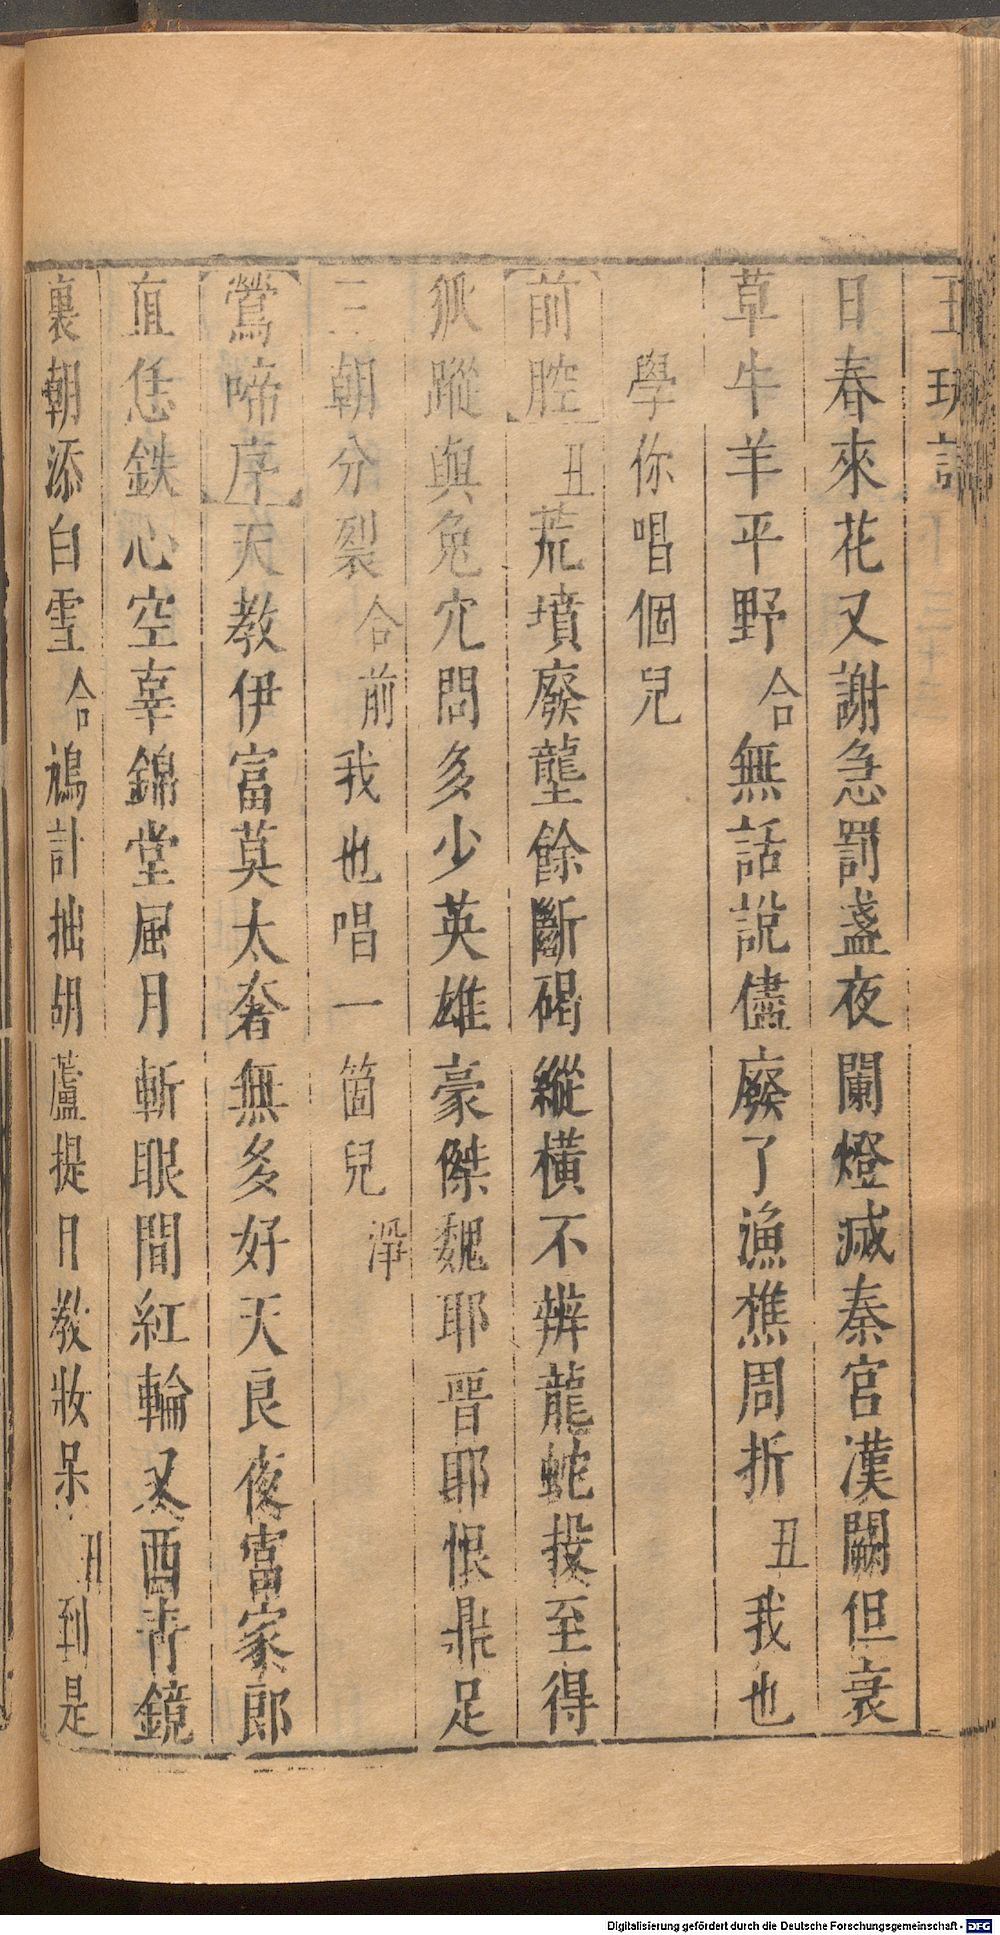 玉玦記
日春來花又謝急罰盞夜闌燈滅秦宮漢闕但衰
草牛羊平野合無話說儘廢了漁樵周折丑我也
學你唱個兒
前腔丑荒墳廢壟餘斷碣縱橫不辨龍蛇投至得
狐蹤與兔穴問多少英雄豪傑魏耶晉耶恨鼎足
三朝分裂合前我也唱一箇兒淨
鶯啼序天教伊富莫太奢無多好天良夜富家郎
直恁鉄心空辜錦堂風月斬眼間紅輪又酉青鏡
裏朝添白雪合鴆計拙胡蘆提日教妝呆丑到是
Digitalisierung gefördert durch die Deutsche Forschungsgemeinschaft - DFG